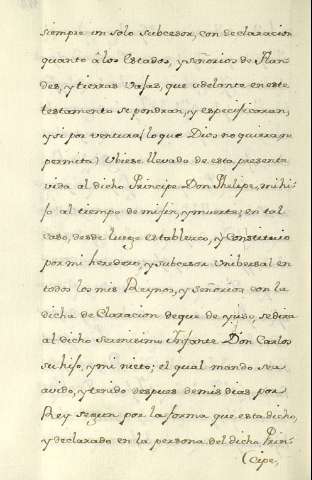 siempre un solo subcesor, con declaracion
quanto â los Estados, y señorios de Flan-
des, y tierras vajas, que adelante en este
testamento se pondran, y especificaran,
y si por ventura (lo que Dios no quiera ni
permita) Ubiese llevado de esta presente
vida al dicho Principe Don Phelipe, mi hi-
jo al tiempo de mi fin, y muerte; en tal
caso, desde luego establezco, y Constituio
por mi heredero, y subcesor Unibersal en
todos los mis Reynos, y Señorios con la
dicha de Claracion de que de yuso, se dira
al dicho Serenisimo Infante Don Carlos
su hijo, y mi nieto; el qual mando sea
avido, y tenido despues de mis dias por
Rey segun por la forma que esta dicho,
y declarado en la persona del dicho Prin-
(cipe,